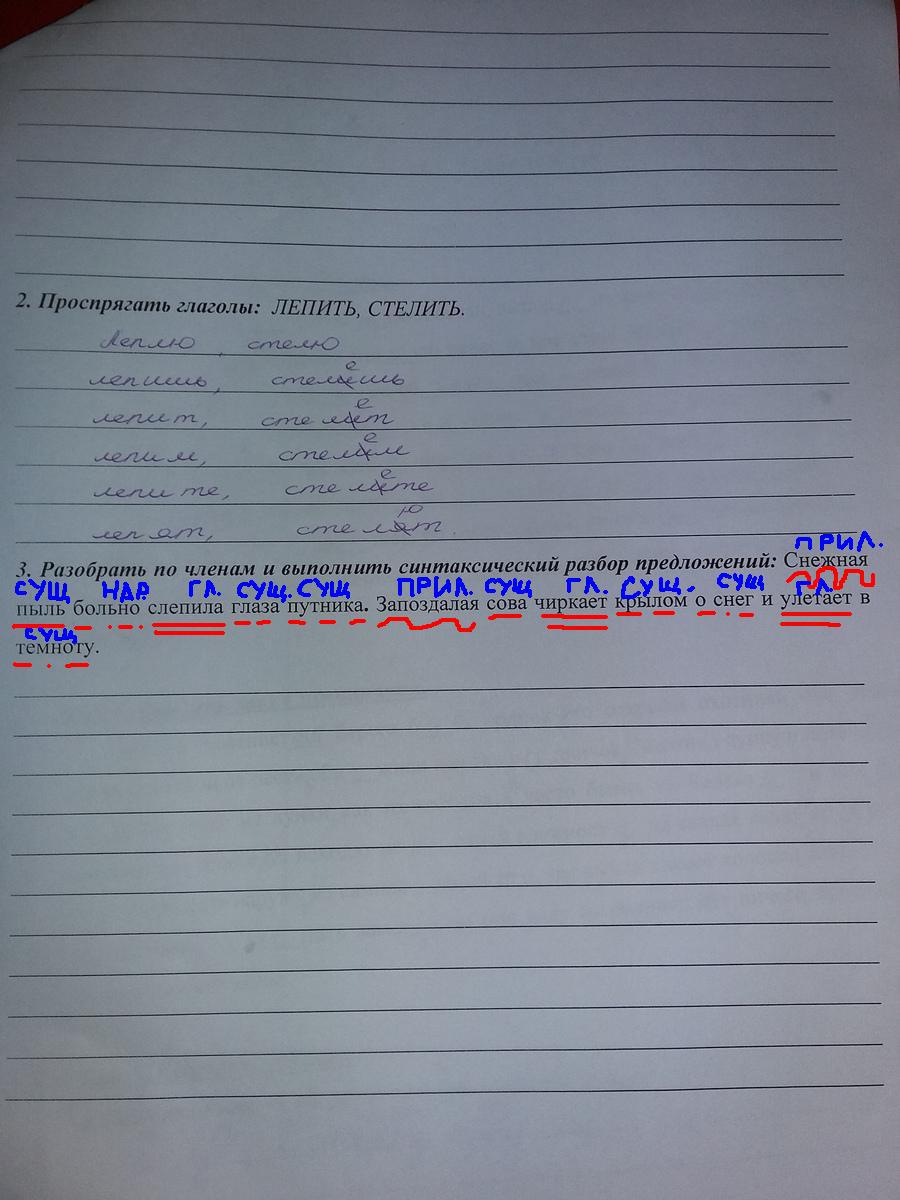 2. Проспрягать глаголы: ЛЕПИТЬ, СТЕЛИТЬ.
Леплю, стелю
лепишь, стелешь
лепит, стелет
лепим, стелем
лепите, стелете
лепят, стелют.
ПРИЛ.
3. Разобрать по членам и выполнить синтаксический разбор предложений: Снежная
СУЩ НАР. ГЛ. СУЩ. СУЩ ПРИЛ. СУЩ ГЛ. СУЩ. СУЩ ГЛ.
пыль больно слепила глаза путника. Запоздалая сова чиркает крылом о снег и улетает в
СУЩ
темноту.